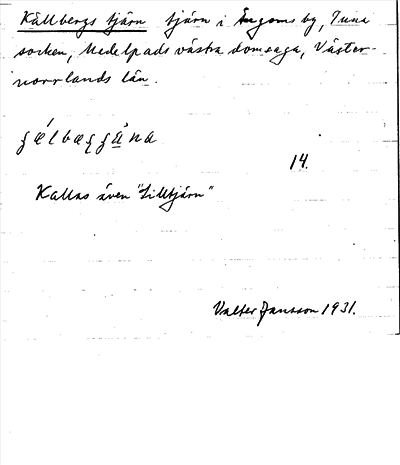 Källbergs tjärn tjärn i Ångoms by, Tuna
socken, Medelpads västra domsaga, Väster-
norrlands län.
14.
Kallas även "Lilltjärn"
Valter Jansson 1931.